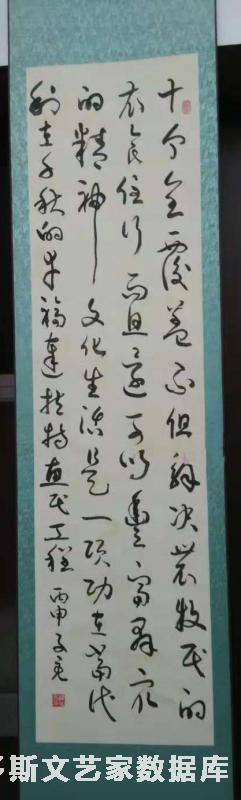 十个全覆盖不但解决农牧民的
衣食住行而且还可以丰富群众
的精神文化生活是一项功在当代
利在千秋的幸福达拉特惠民工程 丙申
多斯文艺家数据库